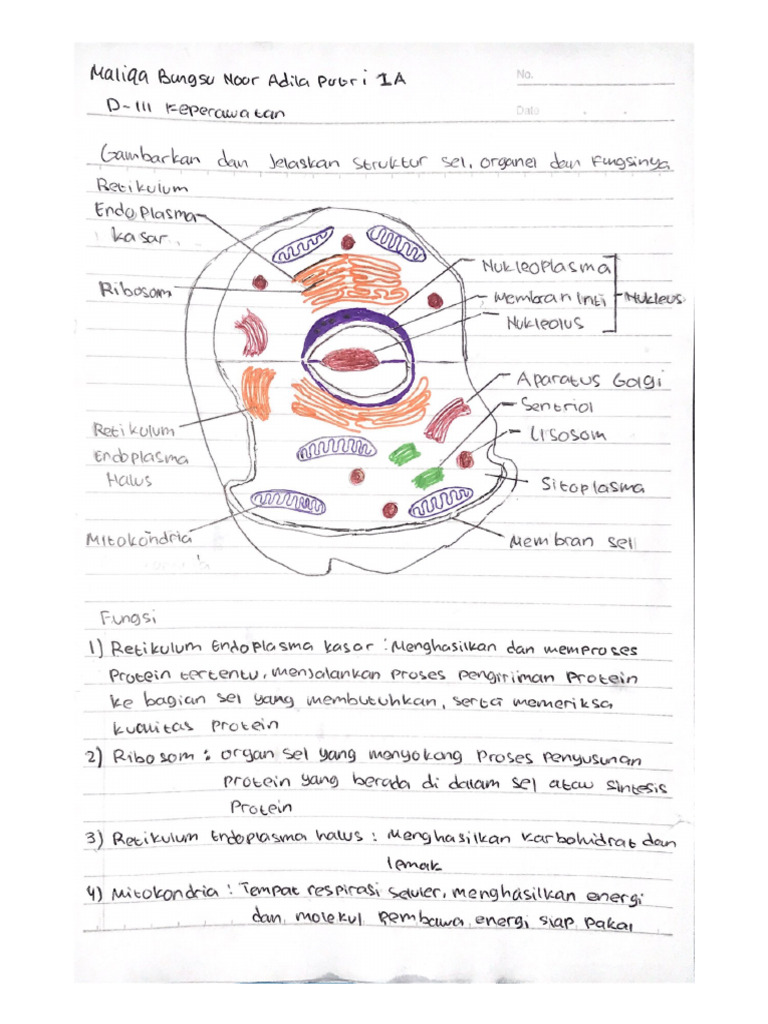 Maliqa Bungsu Noor Adila Putri 1A
No.
D-III Keperawatan
Date
Gambarkan dan Jelaskan struktur sel, organel dan Fungsinya
Retikulum
Endoplasma
kasar
Ribosom
Nukleoplasma
Membran Inti
Nukleus
Nukleolus
Aparatus Golgi
Sentriol
Lisosom
Retikulum
Endoplasma
Halus
Sitoplasma
Mitokondria
Membran sel
Fungsi
1) Retikulum Endoplasma kasar : Menghasilkan dan memproses
Protein tertentu, menjalankan proses pengiriman Protein
ke bagian sel yang membutuhkan, serta memeriksa
kualitas protein
2) Ribosom : organ sel yang menyokong Proses Penyusunan
Protein yang berada di dalam sel atau sintesis
Protein
3) Retikulum Endoplasma halus : Menghasilkan karbohidrat dan
lemak
4) Mitokondria : Tempat respirasi seluler, menghasilkan energi
dan molekul Pembawa energi siap pakai